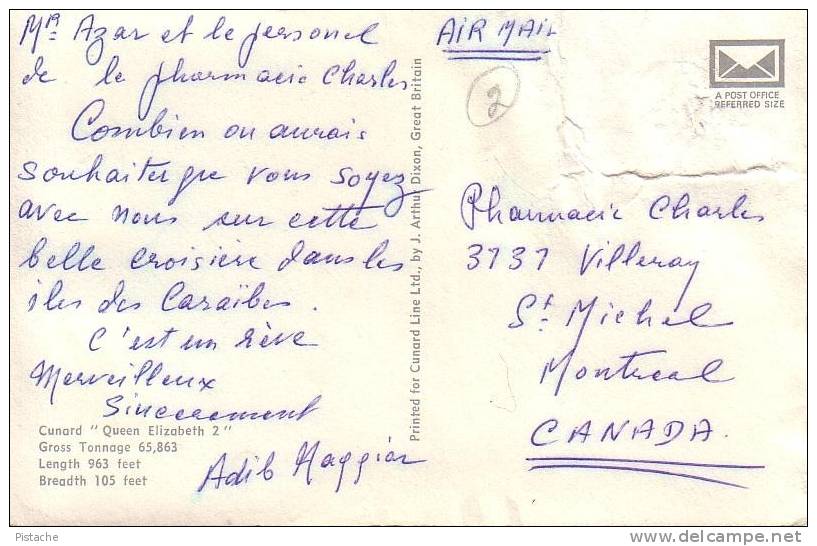 Mr Azar et le personel
de la pharmacie Charles
Combien on aurais
souhaiter que vous soyez
avec nous sur cette
belle croisière dans les
îles des Caraïbes.
C'est un rêve
Merveilleux
Sincerement
Adib Haggiar
Cunard "Queen Elizabeth 2"
Gross Tonnage 65,863
Length 963 feet
Breadth 105 feet
Printed for Cunard Line Ltd., by J. Arthur Dixon, Great Britain
AIR MAIL
2
A POST OFFICE
PREFERRED SIZE
Pharmacie Charles
3731 Villeray
St Michel
Montreal
CANADA.
Pistache
www.delcampe.net